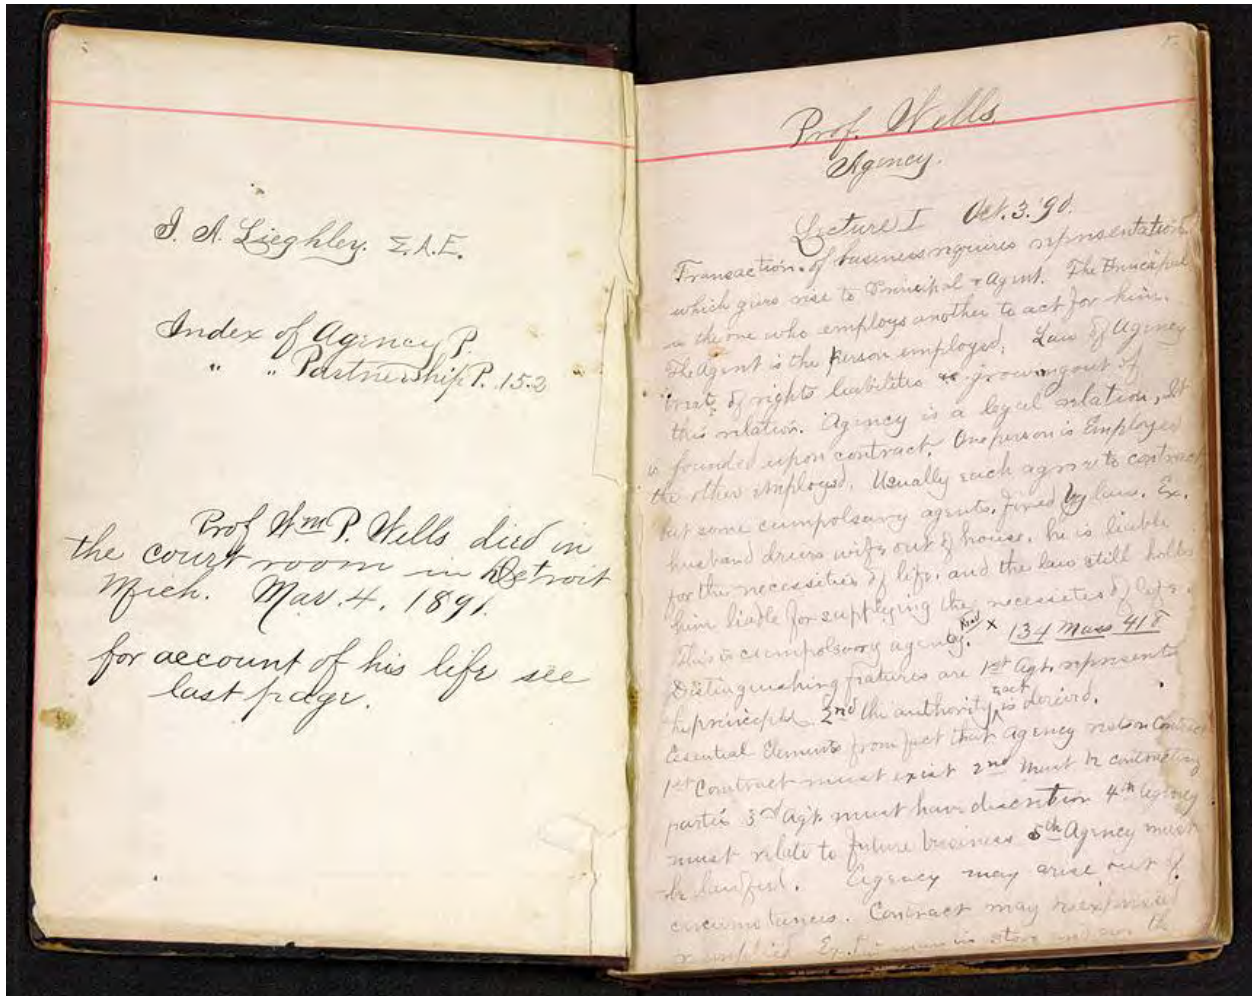 I. A. Lieghley. Σ.A.E.
Index of Agency P.
" " Partnership P. 152
Prof Wm P. Wells died in
the court room in Detroit
Mich. Mar. 4. 1891.
for account of his life see
last page.
Prof. Wells
Agency.
Lecture I Oct. 3. 90.
Transaction of business requires representation
which gives rise to Principal & Agent. The Principal
is the one who employs another to act for him.
The Agent is the person employed. Law of Agency
treats of rights liabilities growing out of
this relation. Agency is a legal relation, It
is founded upon contract. One person is Employer
the other employed. Usually each agree to contract
but some cumpolsary agents, fixed by law. Ex.
husband drives wife out of house. he is liable
for the necessities of life. and the law still holds
him liable for supplying the necessities of life.
This is cumpolsory agency. Read x 134 Mass 418
Distinguishing features are 1st Agt. represents
principle. 2nd the authority is derived.
Essential Elements from fact that agency rests on Contract
1st Contract must exist 2nd Must be contracting
parties 3rd Agt. must have discretion 4th Agency
must relate to future business 5th Agency must
be lawful. Agency may arise out of
circumstances. Contract may be expressed
or implied Ex. man in store and